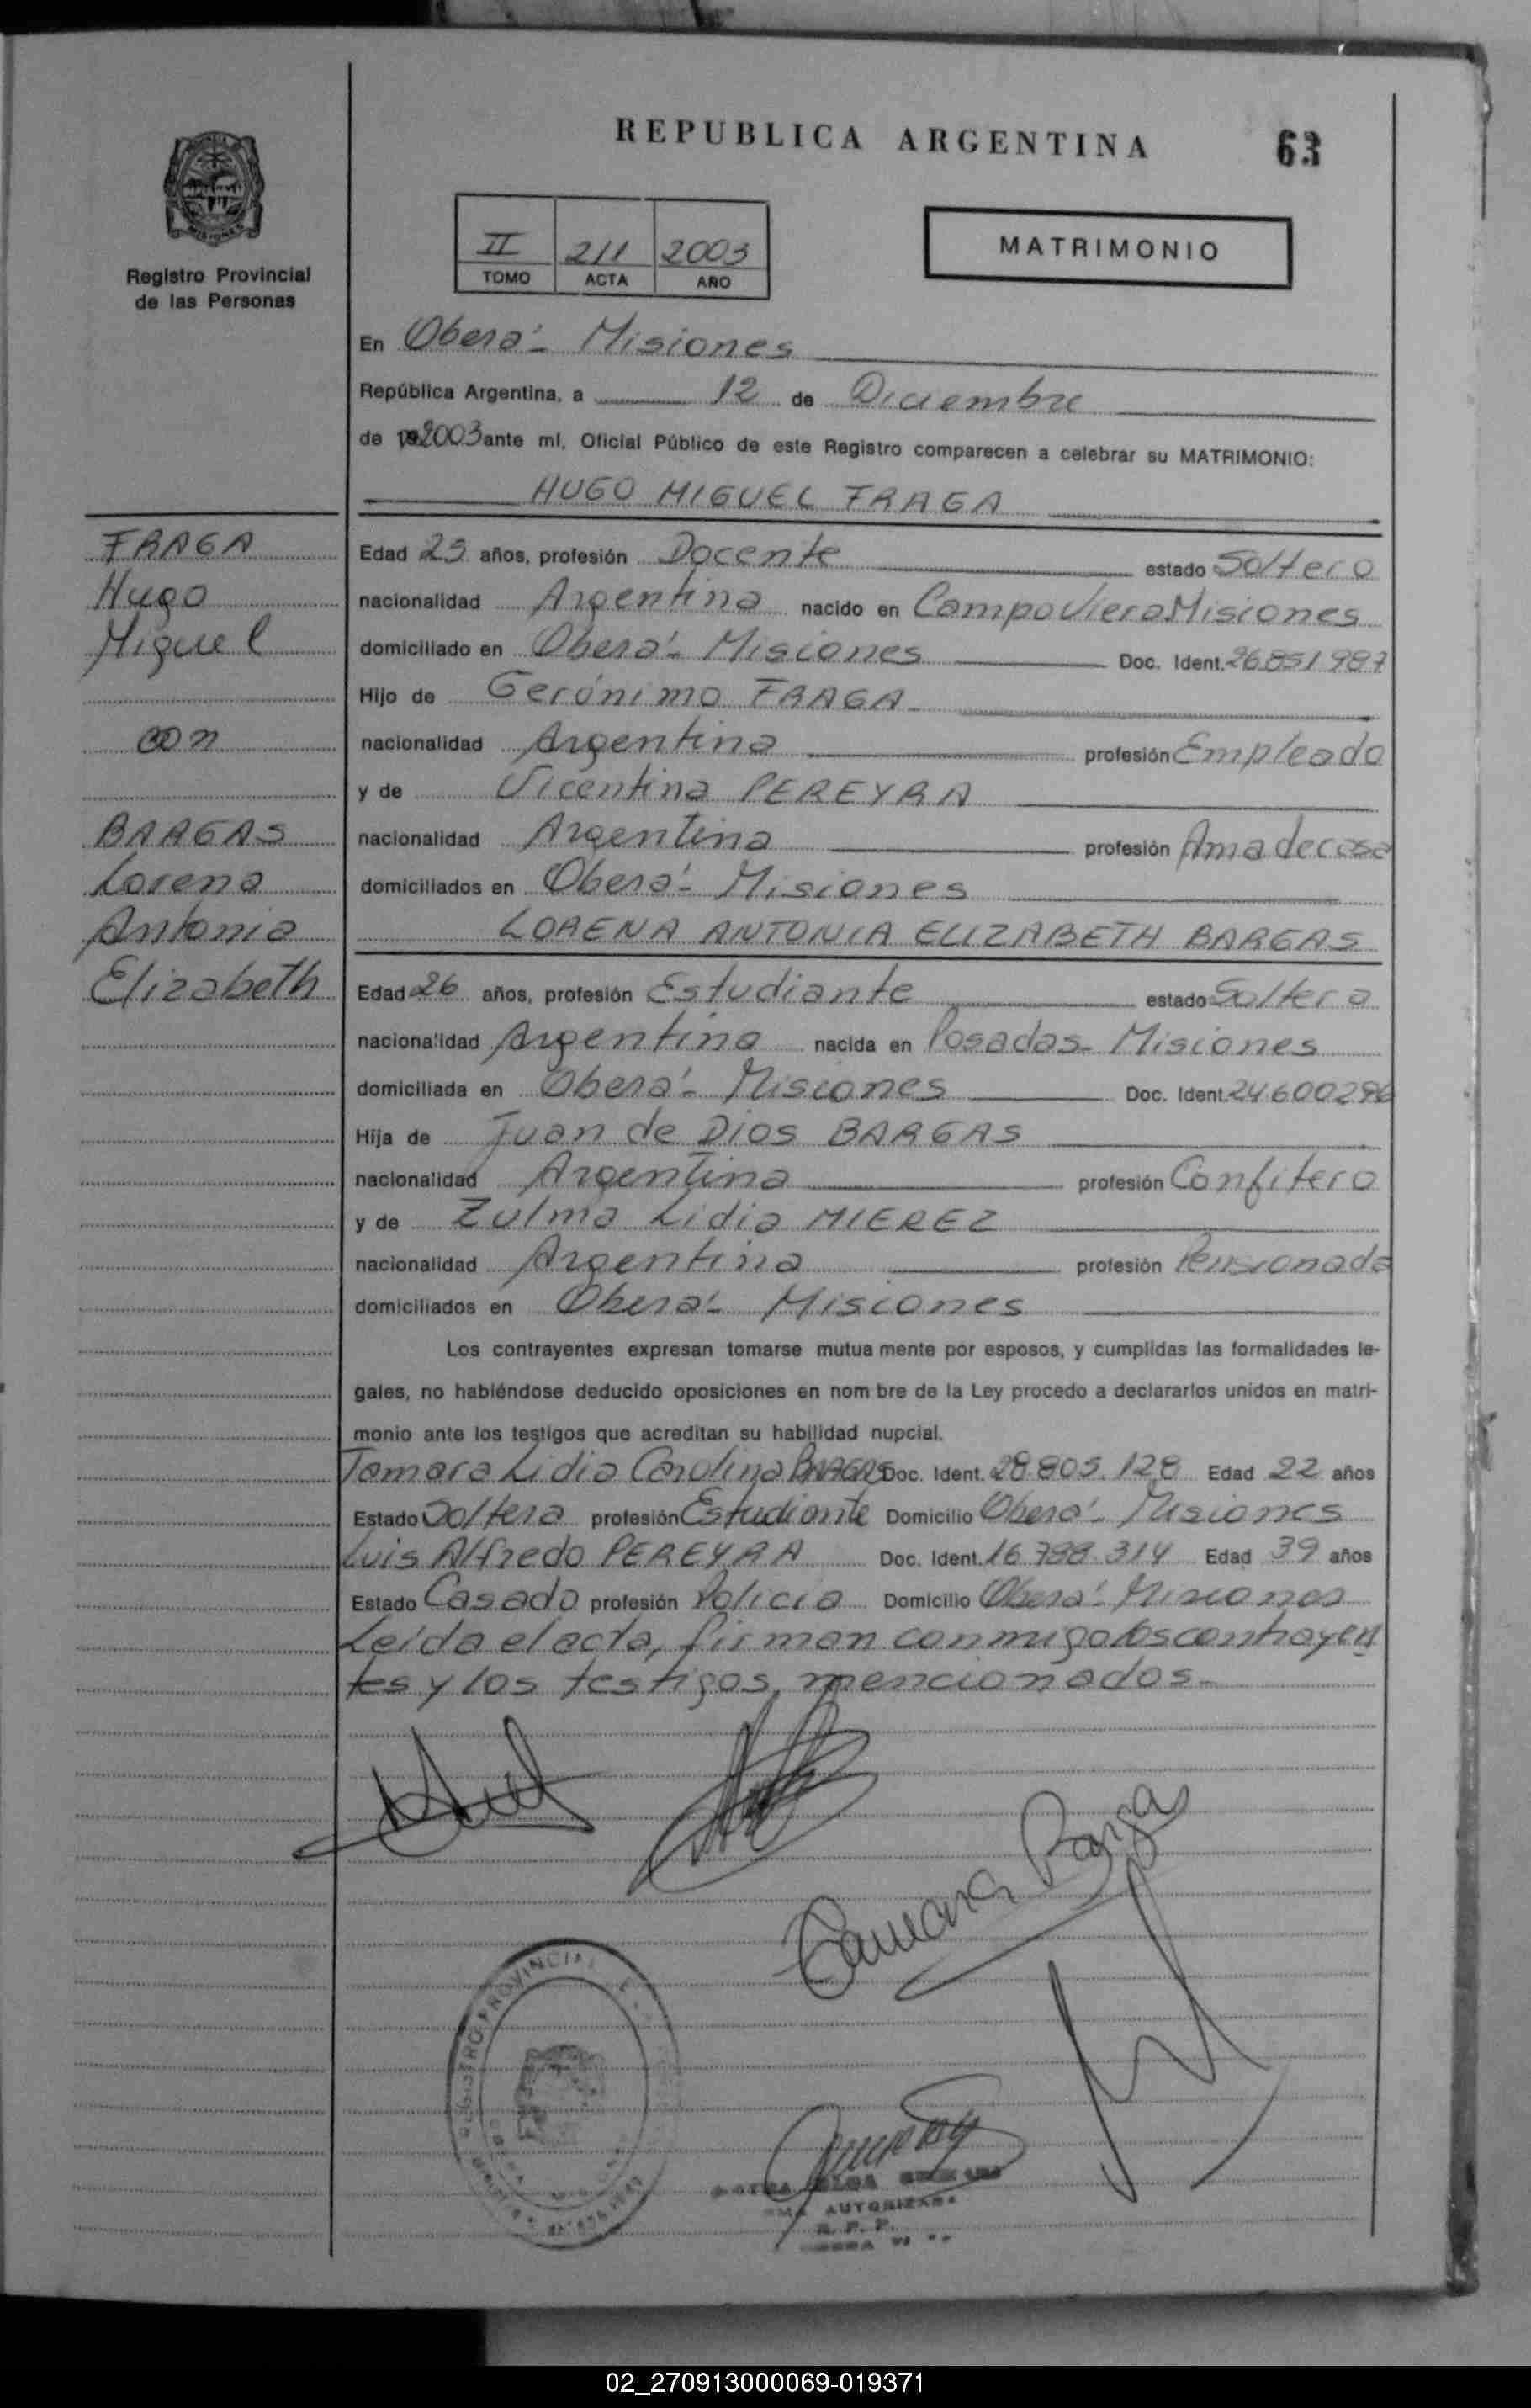 REPUBLICA ARGENTINA
63
Registro Provincial
de las Personas
II 211 2003
TOMO ACTA AÑO
MATRIMONIO
En Oberá - Misiones
República Argentina, a 12 de Diciembre
de 2003 ante mí, Oficial Público de este Registro comparecen a celebrar su MATRIMONIO:
HUGO MIGUEL FRAGA
FRAGA
Hugo
Miguel
con
BARGAS
Lorena
Antonia
Elizabeth
Edad 25 años, profesión Docente estado Soltero
nacionalidad Argentina nacido en Campo Viera Misiones
domiciliado en Oberá - Misiones Doc. Ident. 26851987
Hijo de Gerónimo FRAGA
nacionalidad Argentina profesión Empleado
y de Vicentina PEREYRA
nacionalidad Argentina profesión Ama de casa
domiciliados en Oberá - Misiones
LORENA ANTONIA ELIZABETH BARGAS
Edad 26 años, profesión Estudiante estado Soltera
nacionalidad Argentina nacida en Posadas - Misiones
domiciliada en Oberá - Misiones Doc. Ident. 24600296
Hija de Juan de Dios BARGAS
nacionalidad Argentina profesión Confitero
y de Zulma Lidia MIEREZ
nacionalidad Argentina profesión Pensionada
domiciliados en Oberá - Misiones
Los contrayentes expresan tomarse mutua mente por esposos, y cumplidas las formalidades le-
gales, no habiéndose deducido oposiciones en nom bre de la Ley procedo a declararlos unidos en matri-
monio ante los testigos que acreditan su habilidad nupcial.
Tamara Lidia Carolina BARGAS Doc. Ident. 28.805.128 Edad 22 años
Estado Soltera profesión Estudiante Domicilio Oberá - Misiones
Luis Alfredo PEREYRA Doc. Ident. 16.788.314 Edad 39 años
Estado Casado profesión Policia Domicilio Oberá - Misiones
Leída el acta, firman conmigo los contrayen
tes y los testigos mencionados.-
Tamara Bargas
REGISTRO PROVINCIAL
AUTORIZADA
R. P. P.
02_270913000069-019371